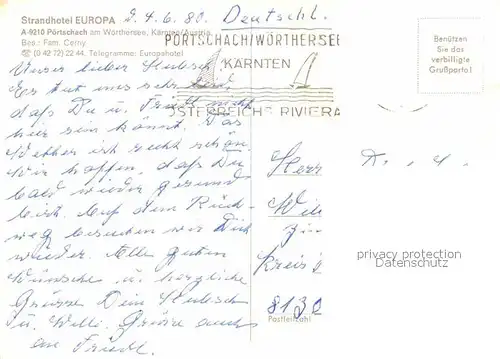 Strandhotel EUROPA
A-9210 Pörtschach am Wörthersee, Kärnten/Austria
Bes.: Fam. Cerny
☎ (0 42 72) 22 44, Telegramme: Europahotel
d. 4.6.80. Deutschl.
PÖRTSCHACH/WÖRTHERSEE
KÄRNTEN
ÖSTERREICHS RIVIERA
Benützen
Sie das
verbilligte
Grußporto!
Unser lieber
Es tut uns sehr leid,
daß Du u. Friedl nicht
hier sein könnt. Das
Wetter ist recht schön
Wir hoffen, daß Du
bald wieder gesund
bist. Auf dem Rück-
weg besuchen wir Dich
wieder. Alle guten
Wünsche u. herzliche
Grüsse Dein
u. Willi. Grüsse auch
an Friedl.
Herr
Kreis
8130
Postleitzahl
privacy protection
Datenschutz